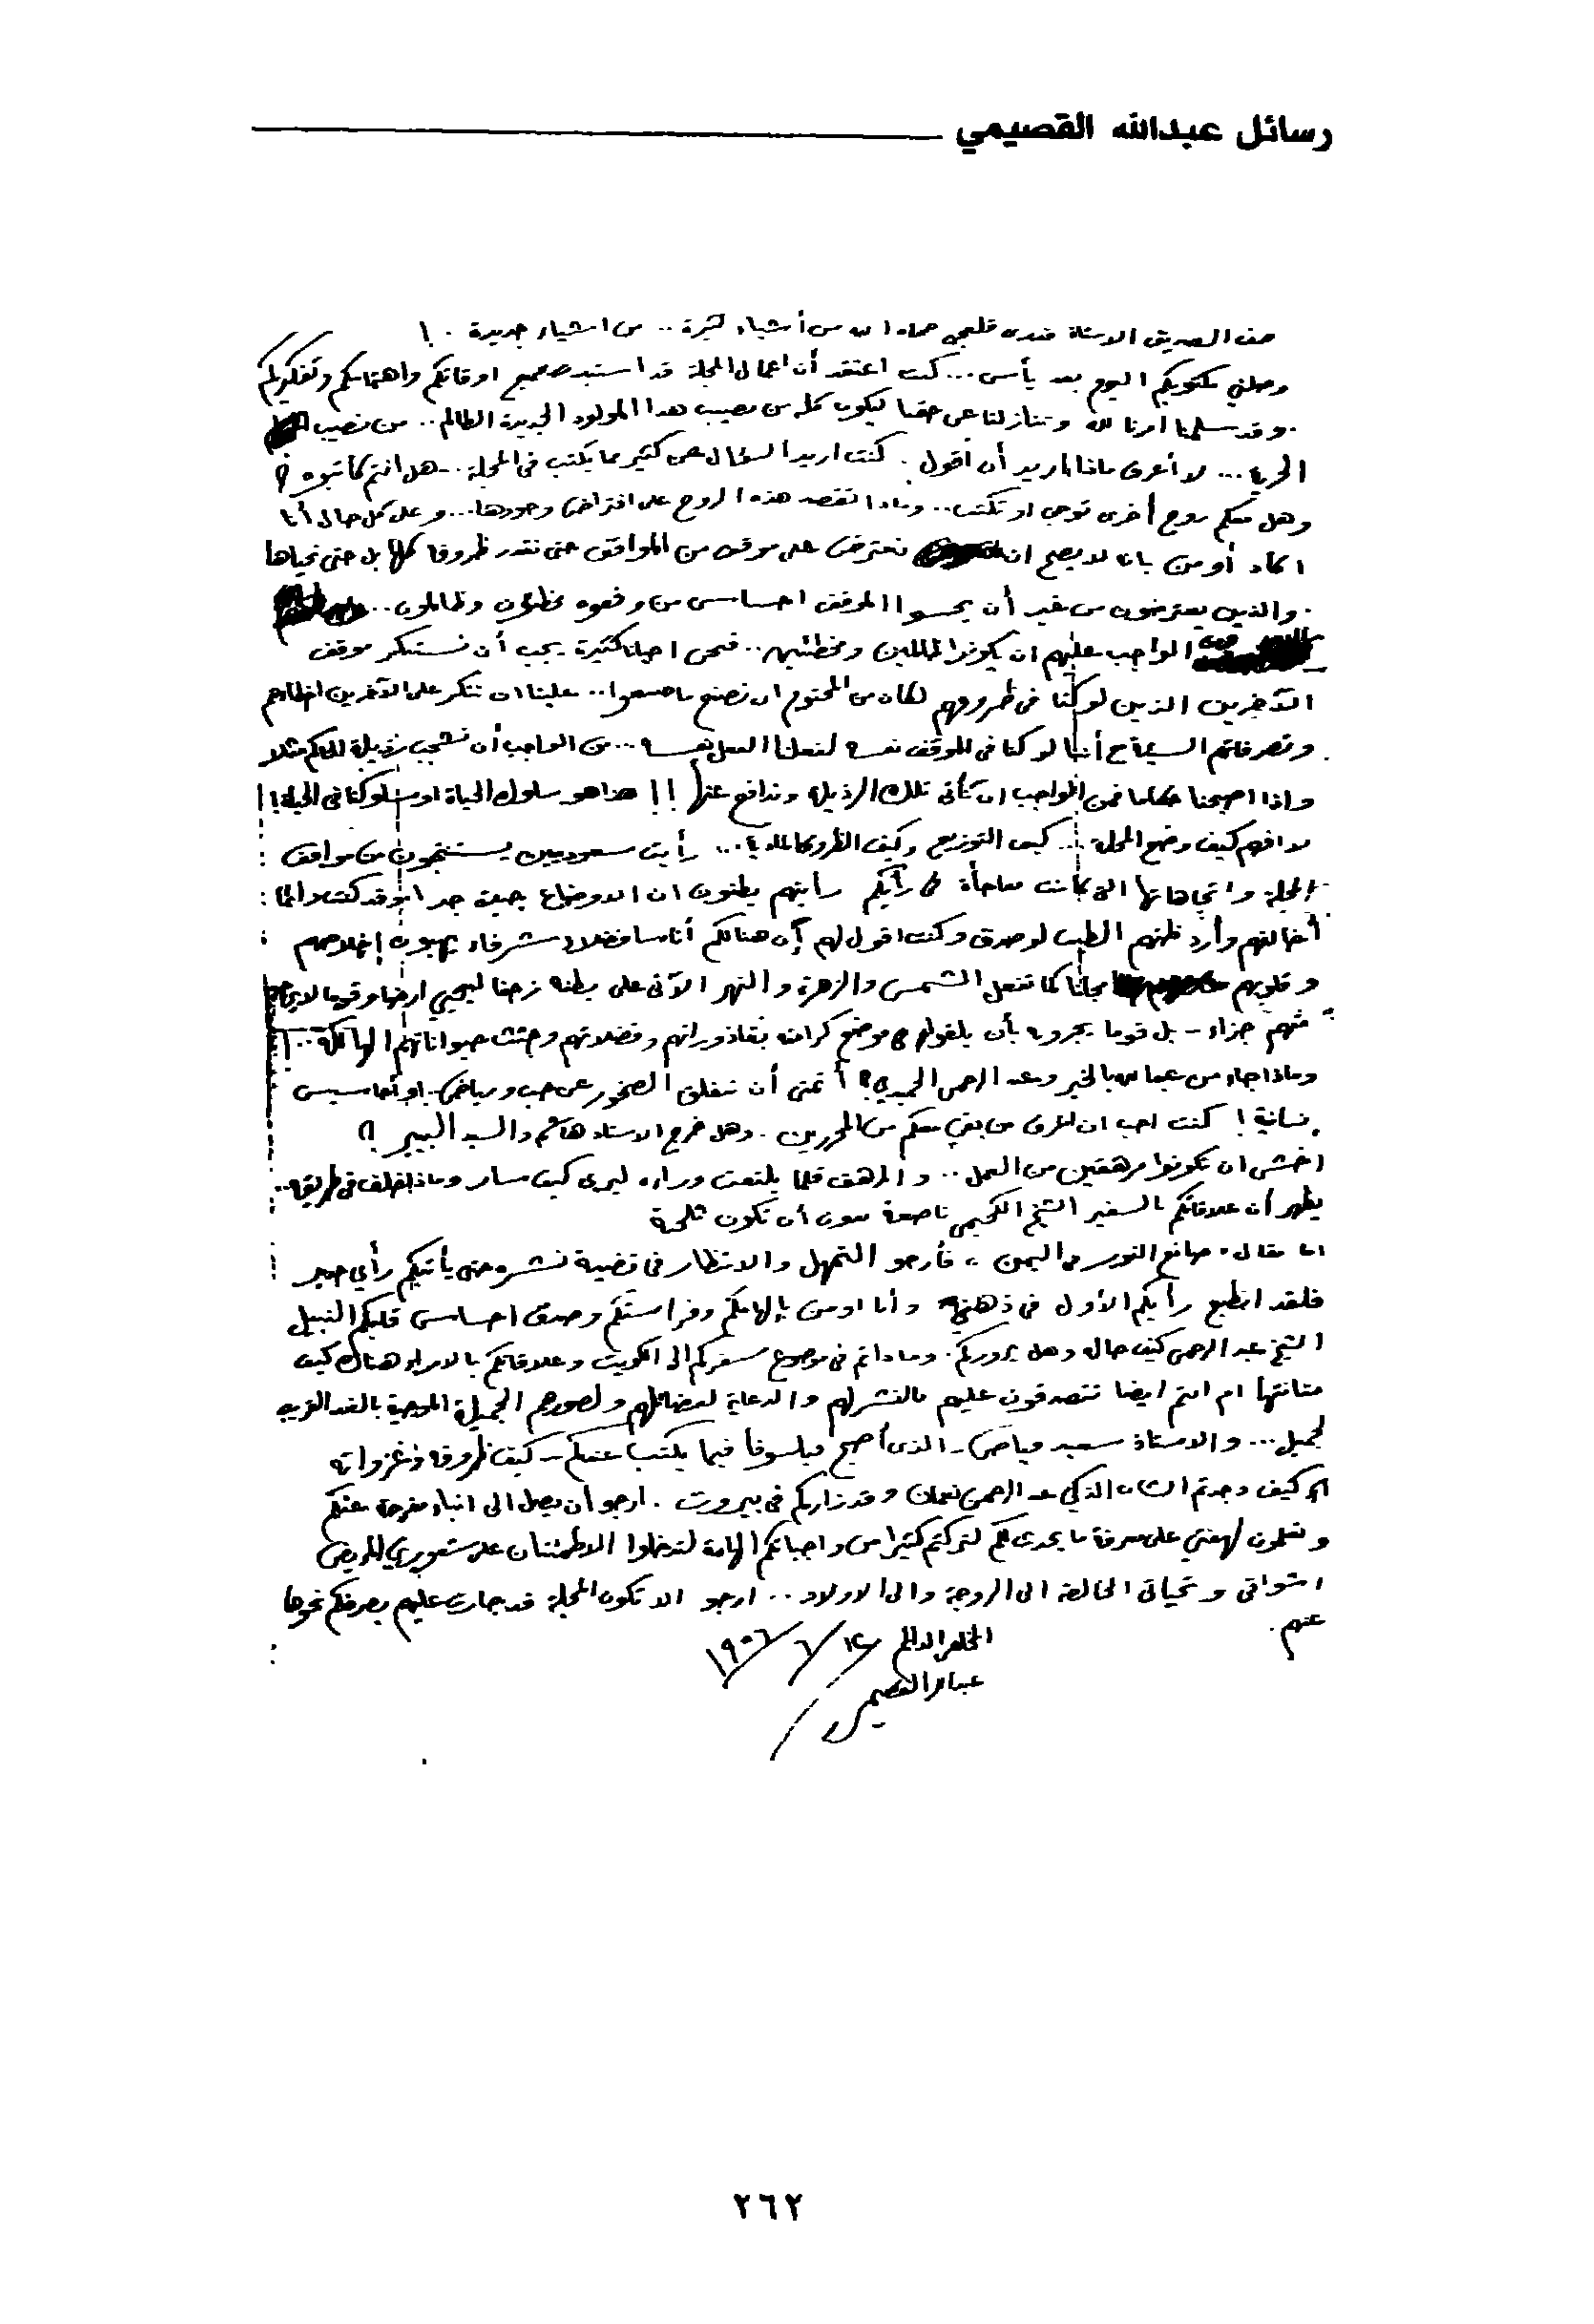 رسائل عبدالله القصيمي
الصديق الاستاذ قدري قلعجي حماه الله من أشياء كثيرة .. من اشياء جديدة . !
وصلني مكتوبكم اليوم بعد يأس ... كنت اعتقد أن اعمال المجلة قد استبدت بجميع اوقاتكم واهتمامكم وتفكيركم
. وقد سلمنا امرنا لله وتنازلنا عن حقنا ليكون كله من نصيب هذا المولود الجديد الظالم .. من نصيب
الحرية ... لا أعرف ماذا اريد أن اقول . كنت اريد السؤال عن كثير مما يكتب في المجلة .. هل انتم كاتبوه ؟
وهل معكم روح أخرى توحي او تكتب .. وماذا تقصد هذه الروح على افتراض وجودها ... وعلى كل حال أنا
اكاد أومن بانه لا يصح ان نعترض على موقف من المواقف حتى نقدر ظروفه كلها بل حتى نحياها
. والذين يعترضون من غير أن يحسوا الموقف احساس من وقعوه مخطئون وظالمون ..
الواجب عليهم ان يكونوا ظالمين ومخطئين .. فنحن احيانا كثيرة يجب أن نستنكر موقف
الآخرين الذين لو كنا في ظروفهم لكان من المحتوم ان نصنع ما صنعوا .. علينا ان ننكر على الآخرين اخطاءهم
وتصرفاتهم السيئة مع أننا لو كنا في الموقف نفسه لفعلنا الفعل نفسه ... من الواجب أن نشجب رذيلة الحكم مثلا
واذا اصبحنا حكاما فمن الواجب ان نأتي تلك الرذيلة وندافع عنها !! هذا هو سلوك الحياة او سلوكنا في الحياة !!
لا افهم كيف وضع المجلة ... كيف التوزيع وكيف الظروف المادية ... رأيت سعوديين يستنتجون من مواقف
المجلة واتجاهاتها التي كانت مفاجأة في رأيكم رأيتهم يظنون ان الاوضاع جيدة جدا وقد كنت دائما
أخالفهم وأرد ظنهم الطيب لو صدق وكنت اقول لهم إن هنالكم أناسا فضلاء شرفاء يهبون إخلاصهم
وقلوبهم مجانا كما تفعل الشمس والزهرة والنهر الآتي على بطنه زحفا ليحيي ارضا وقوما لا يرجو
منهم جزاء - بل قوما يجزونه بأن يلقوا في موضع كرامته بقاذوراتهم وفضلاتهم وجثث حيواناتهم الهالكة ..
وماذا جاء من عباس بالخير وعبد الرحمن الحميدي ؟ أتمنى أن تنفلق الصخور عن حب ورياض او أحاسيس
إنسانية ! كنت احب ان اعرف من بقي معكم من المحررين . وهل خرج الاستاذ هاشم والسيد البيبر ؟
اخشى ان تكونوا مرهقين من العمل .. والمرهق قلما يلتفت وراءه ليرى كيف سار وماذا خلف في طريقه ..
يظهر أن علاقاتكم بالسفير الشيخ الكحيمي ناصعة دون أن تكون ثلجية
اما مقال « صانع النور في اليمن » فأرجو التمهل والانتظار في قضية نشره حتى يأتيكم رأي جديد
فلقد انطبع رأيكم الأول في ذهني وأنا اومن بإلهامكم وفراستكم وصدق احساس قلبكم النبيل
الشيخ عبد الرحمن كيف حاله وهل يزوركم . وماذا تم في موضوع سفركم الى الكويت وعلاقاتكم بالامراء هناك كيف
متانتها ام انتم ايضا تتصدقون عليهم بالنشر لهم والدعاية لفضائلهم ولصورهم الجميلة الموحية بالغد القريب
الجميل ... والاستاذ سعيد فياض - الذي أصبح فيلسوفا فيما يكتب عنكم - كيف ظروفه وغزواته
ثم كيف وجدتم الشاب الذكي عبد الرحمن نعمان وقد زاركم في بيروت . ارجو أن يصل الى انباء مفرحة عنكم
وتعلمون لهفتي على معرفة ما يحدث لكم لتركتم كثيرا من واجباتكم الهامة لتدخلوا الاطمئنان على شعوري المريض
اشواقي وتحياتي الخالصة الى الزوجة والى الاولاد .. ارجو الا تكون المجلة قد جارت عليهم بصرفكم نحوها
عنهم .
المخلص الدائم
١٩٥٦/٦/١٤
عبدالله القصيمي
٢٦٢